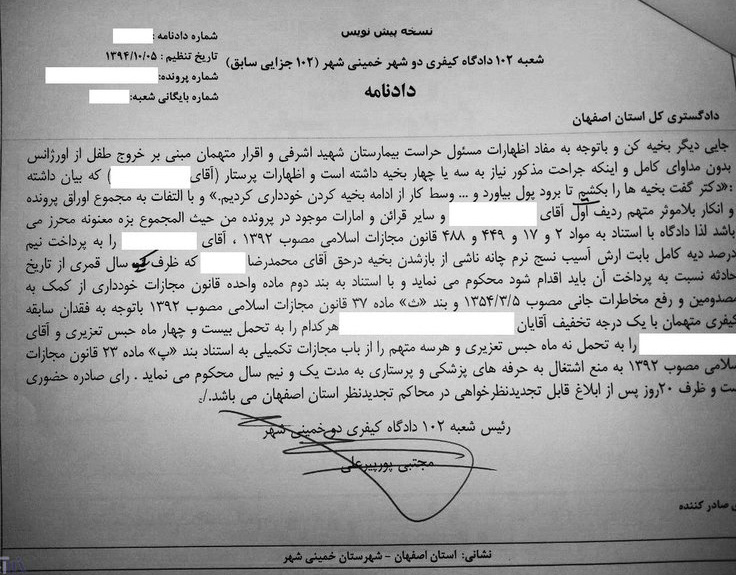 نسخه پیش نویس
شماره دادنامه :
تاریخ تنظیم : ۱۳۹۴/۱۰/۰۵
شماره پرونده:
شماره بایگانی شعبه:
شعبه ۱۰۲ دادگاه کیفری دو شهر خمینی شهر (۱۰۲ جزایی سابق)
دادنامه
دادگستری کل استان اصفهان
جایی دیگر بخیه کن و باتوجه به مفاد اظهارات مسئول حراست بیمارستان شهید اشرفی و اقرار متهمان مبنی بر خروج طفل از اورژانس
بدون مداوای کامل و اینکه جراحت مذکور نیاز به سه یا چهار بخیه داشته است و اظهارات پرستار (آقای که بیان داشته
:«دکتر گفت بخیه ها را بکشم تا برود پول بیاورد و ... وسط کار از ادامه بخیه کردن خودداری کردیم.» و با التفات به مجموع اوراق پرونده
و انکار بلاموثر متهم ردیف اول آقای و سایر قرائن و امارات موجود در پرونده من حیث المجموع بزه معنونه محرز می
باشد لذا دادگاه با استناد به مواد ۲ و ۱۷ و ۴۴۹ و ۴۸۸ قانون مجازات اسلامی مصوب ۱۳۹۲ ، آقای را به پرداخت نیم
درصد دیه کامل بابت ارش آسیب نسج نرم چانه ناشی از بازشدن بخیه درحق آقای محمدرضا که ظرف سال قمری از تاریخ
حادثه نسبت به پرداخت آن باید اقدام شود محکوم می نماید و با استناد به بند دوم ماده واحده قانون مجازات خودداری از کمک به
مصدومین و رفع مخاطرات جانی مصوب ۱۳۵۴/۳/۵ و بند «ث» ماده ۳۷ قانون مجازات اسلامی مصوب ۱۳۹۲ باتوجه به فقدان سابقه
کیفری متهمان با یک درجه تخفیف آقایان هرکدام را به تحمل بیست و چهار ماه حبس تعزیری و آقای
را به تحمل نه ماه حبس تعزیری و هرسه متهم را از باب مجازات تکمیلی به استناد بند «پ» ماده ۲۳ قانون مجازات
سلامی مصوب ۱۳۹۲ به منع اشتغال به حرفه های پزشکی و پرستاری به مدت یک و نیم سال محکوم می نماید . رای صادره حضوری
ست و ظرف ۲۰روز پس از ابلاغ قابل تجدیدنظرخواهی در محاکم تجدیدنظر استان اصفهان می باشد./
رئیس شعبه ۱۰۲ دادگاه کیفری دو خمینی شهر
مجتبی پورپیرعلی
ی صادر کننده
نشانی: استان اصفهان - شهرستان خمینی شهر